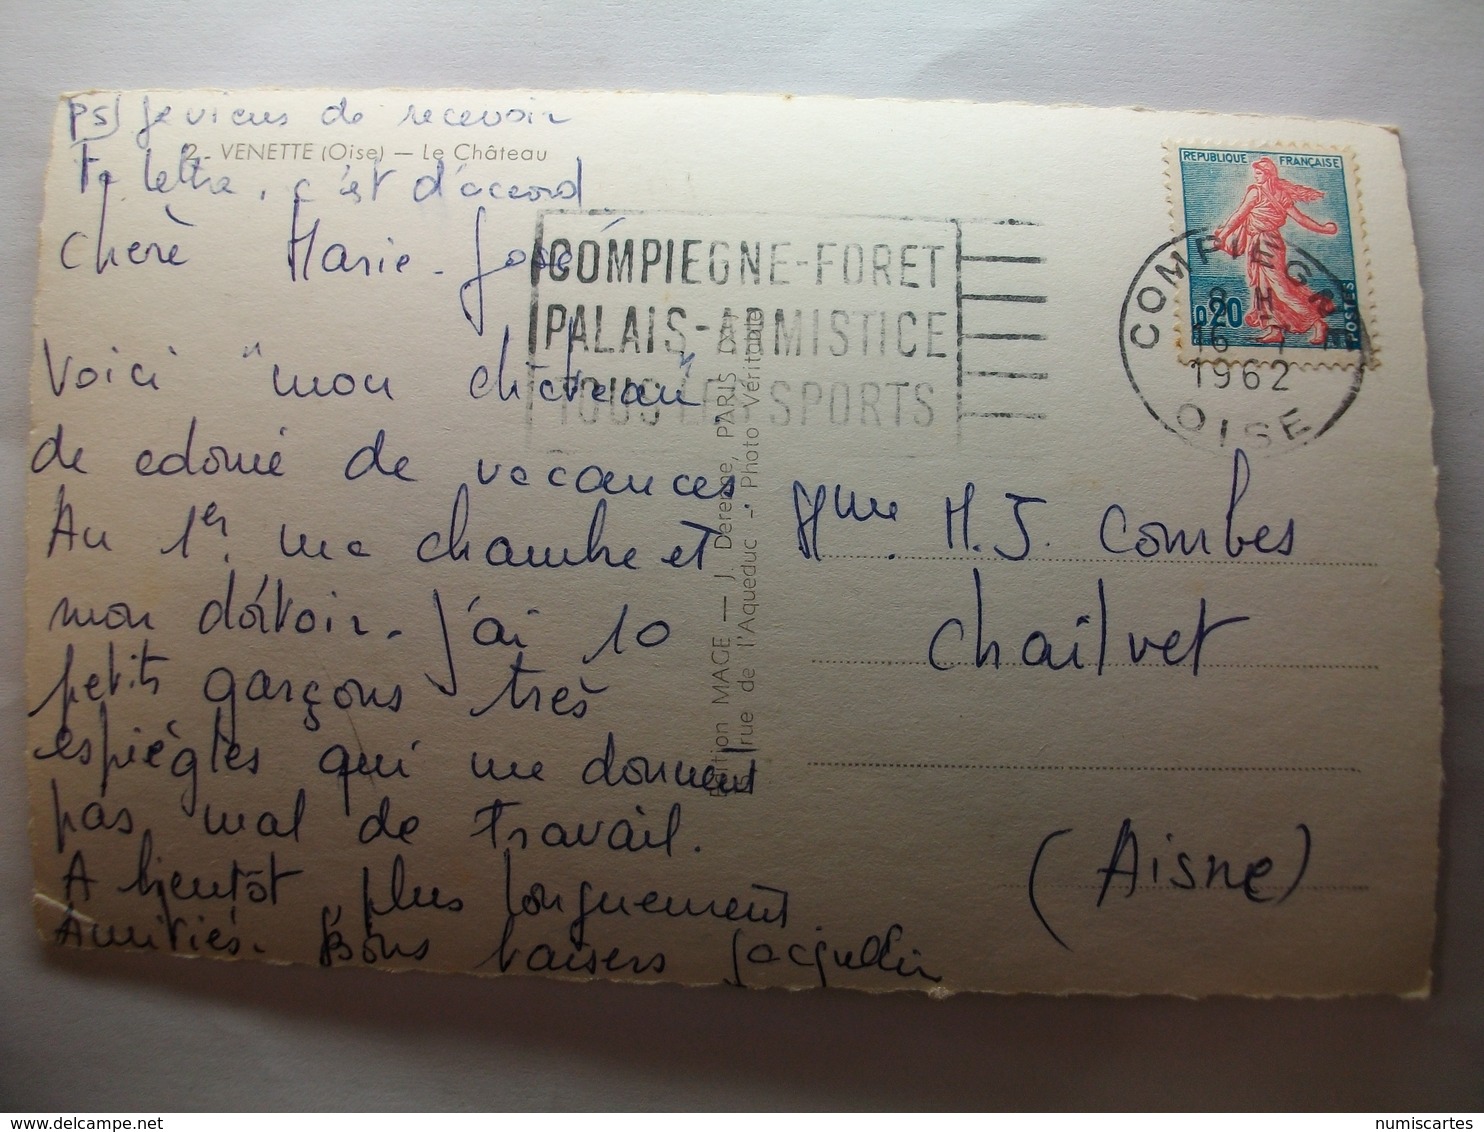 PS) Je viens de recevoir
2 - VENETTE (Oise) — Le Château
ta lettre, c'est d'accord
Chère Marie-José
Voici "mon château"
de colonie de vacances.
Au 1er. ma chambre et
mon dortoir. J'ai 10
petits garçons très
espiègles qui me donnent
pas mal de travail.
A bientôt, plus longuement
Amitiés. Bons baisers Jacquelin
COMPIEGNE-FORET
PALAIS-ARMISTICE
TOUS LES SPORTS
Edition MAGE — J. Derenne, PARIS
rue de l'Aqueduc - Photo Véritable
REPUBLIQUE FRANÇAISE
0,20
POSTES
COMPIEGNE
8 H
16 - 7
1962
OISE
Mme M.J. Combes
Chailvet
(Aisne)
numiscartes